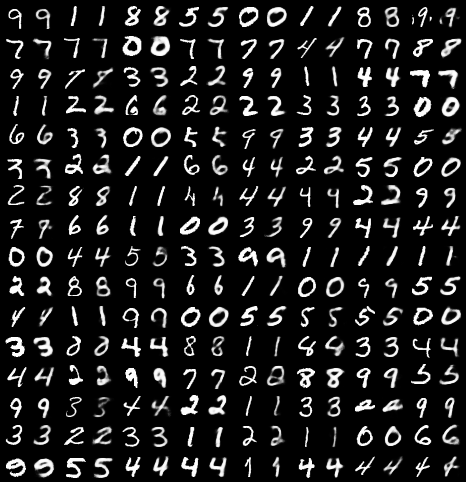 9 9 1 1 8 8 5 5 0 0 1 1 8 8 9 9
7 7 7 7 0 0 7 7 7 7 4 4 7 7 8 8
9 9 7 7 3 3 2 2 9 9 1 1 4 4 7 7
1 1 2 2 6 6 2 2 2 2 3 3 3 3 0 0
6 6 3 3 0 0 5 5 9 9 3 3 4 4 5 5
3 3 2 2 1 1 6 6 4 4 2 2 5 5 0 0
2 2 8 8 1 1 4 4 4 4 9 9 2 2 9 9
7 9 6 6 1 1 0 0 3 3 9 9 4 4 4 4
0 0 4 4 5 5 3 3 9 9 1 1 1 1 1 1
2 2 8 8 9 9 6 6 1 1 0 0 9 9 5 5
4 4 1 1 9 9 0 0 5 5 5 5 5 5 0 0
3 3 0 0 4 4 8 8 1 1 6 4 3 3 4 4
4 4 2 2 9 9 7 7 2 2 8 8 9 9 5 5
9 9 3 3 4 4 2 2 1 1 3 3 9 9
3 3 2 2 3 3 1 1 2 2 1 1 0 0 6 6
9 9 5 5 4 4 4 4 1 1 4 4 4 4 4 4